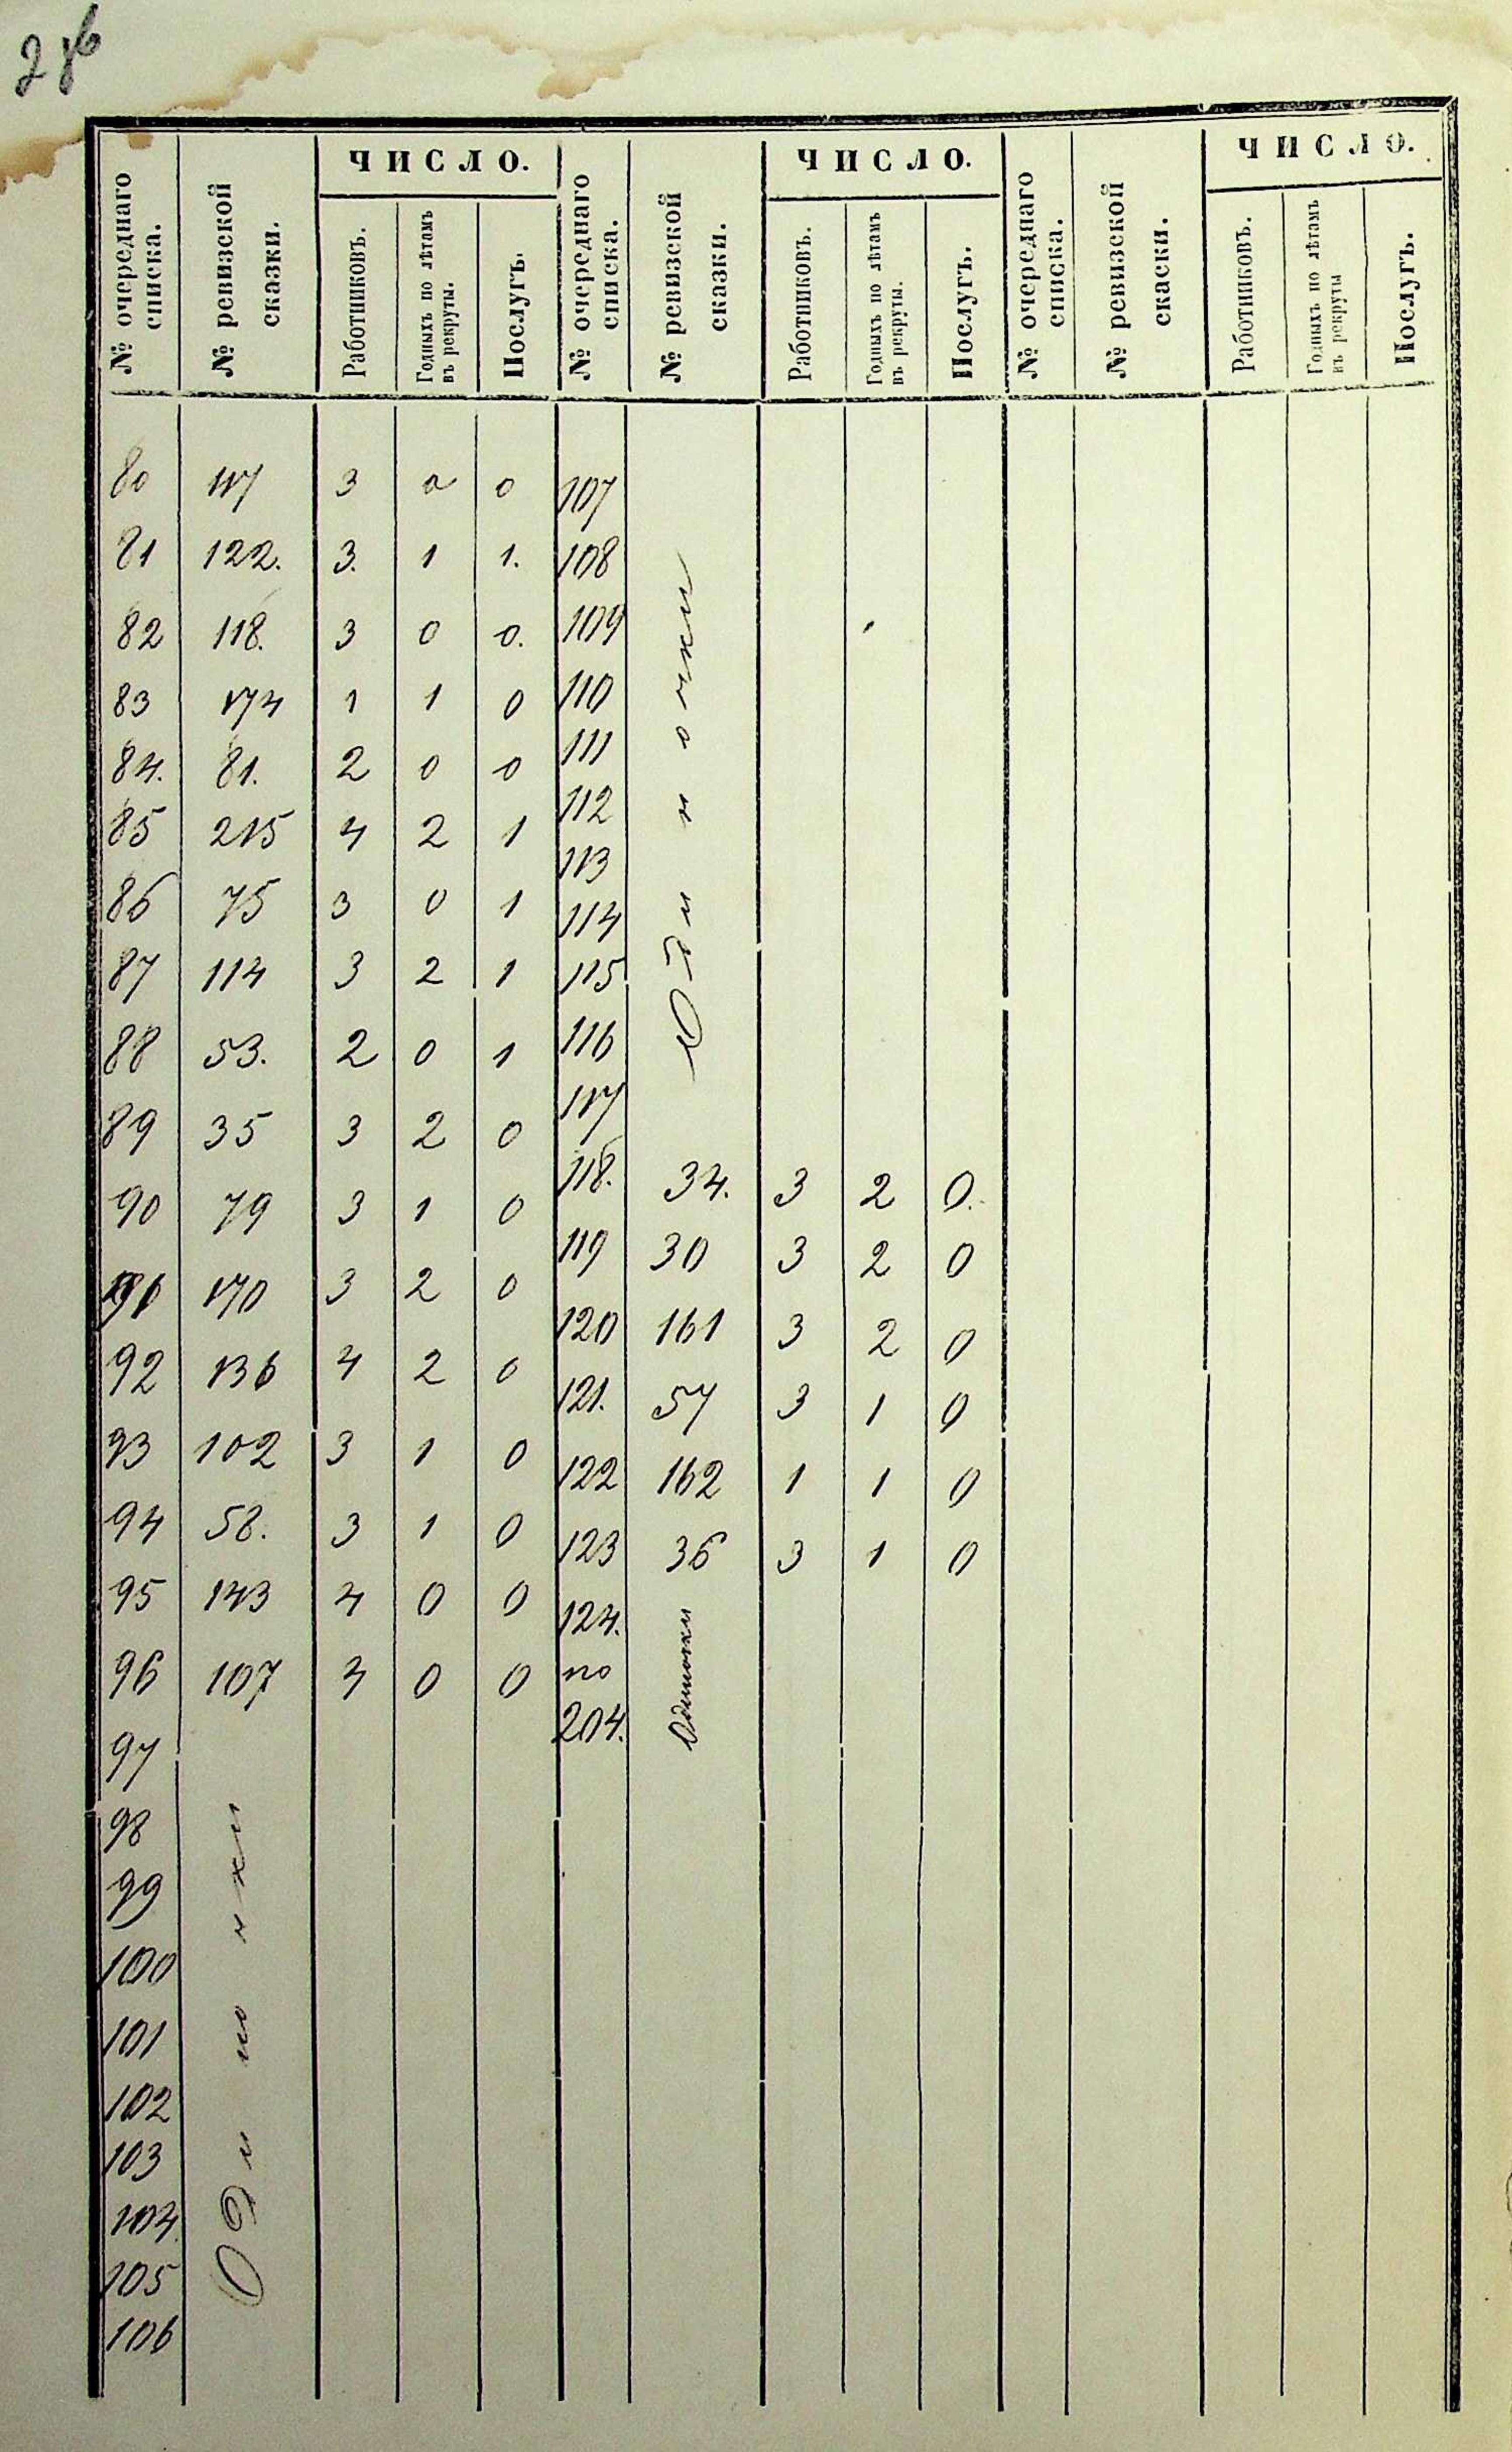 ЧИСЛО. ЧИСЛО. ЧИСЛО.
№ очереднаго списка. № ревизской сказки. Работниковъ. Годныхъ по лѣтамъ въ рекруты. Послугъ. № очереднаго списка. № ревизской сказки. Работниковъ. Годныхъ по лѣтамъ въ рекруты. Послугъ. № очереднаго списка. № ревизской скаски. Работниковъ. Годныхъ по лѣтамъ въ рекруты Послугъ.
80 117 3 0 0
81 122. 3. 1 1.
82 118. 3 0 0.
83 174 1 1 0
84. 81. 2 0 0
85 215 4 2 1
86 75 3 0 1
87 114 3 2 1
88 53. 2 0 1
89 35 3 2 0
90 79 3 1 0
91 170 3 2 0
92 136 4 2 0
93 102 3 1 0
94 58. 3 1 0
95 143 4 0 0
96 107 4 0 0
97
98
99
100
101
102
103
104
105
106
Одиночки
107
108
109
110
111
112
113
114
115
116
117
Одиночки
118. 34. 3 2 0.
119 30 3 2 0
120 161 3 2 0
121. 57 3 1 0
122 162 1 1 0
123 36 3 1 0
124.
по
204.
Одиночки